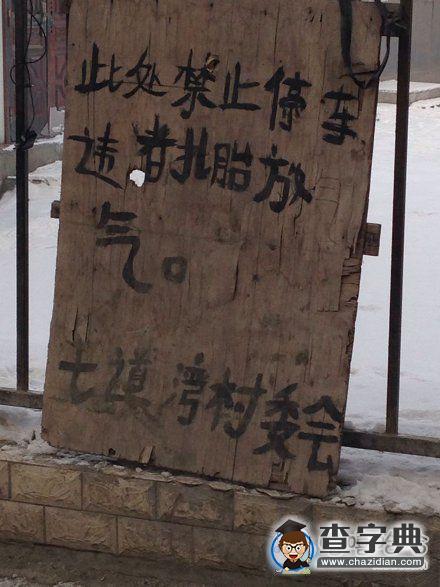 此处禁止停车
违者扎胎放
气。
土漠湾村委会
查字典
www.chazidian.com